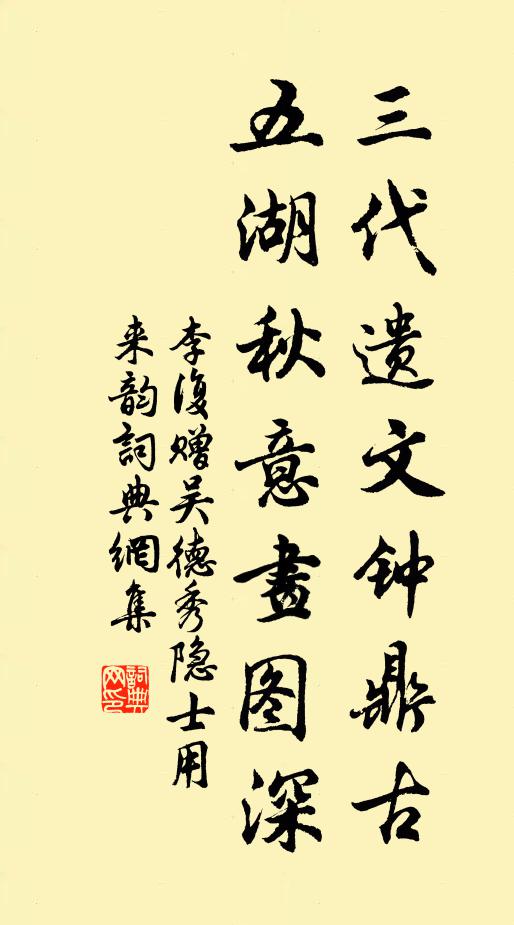 三代遗文钟鼎古
五湖秋意畫图深
李復赠吴德秀隐士用
来韵詞典網集
詞典
网印